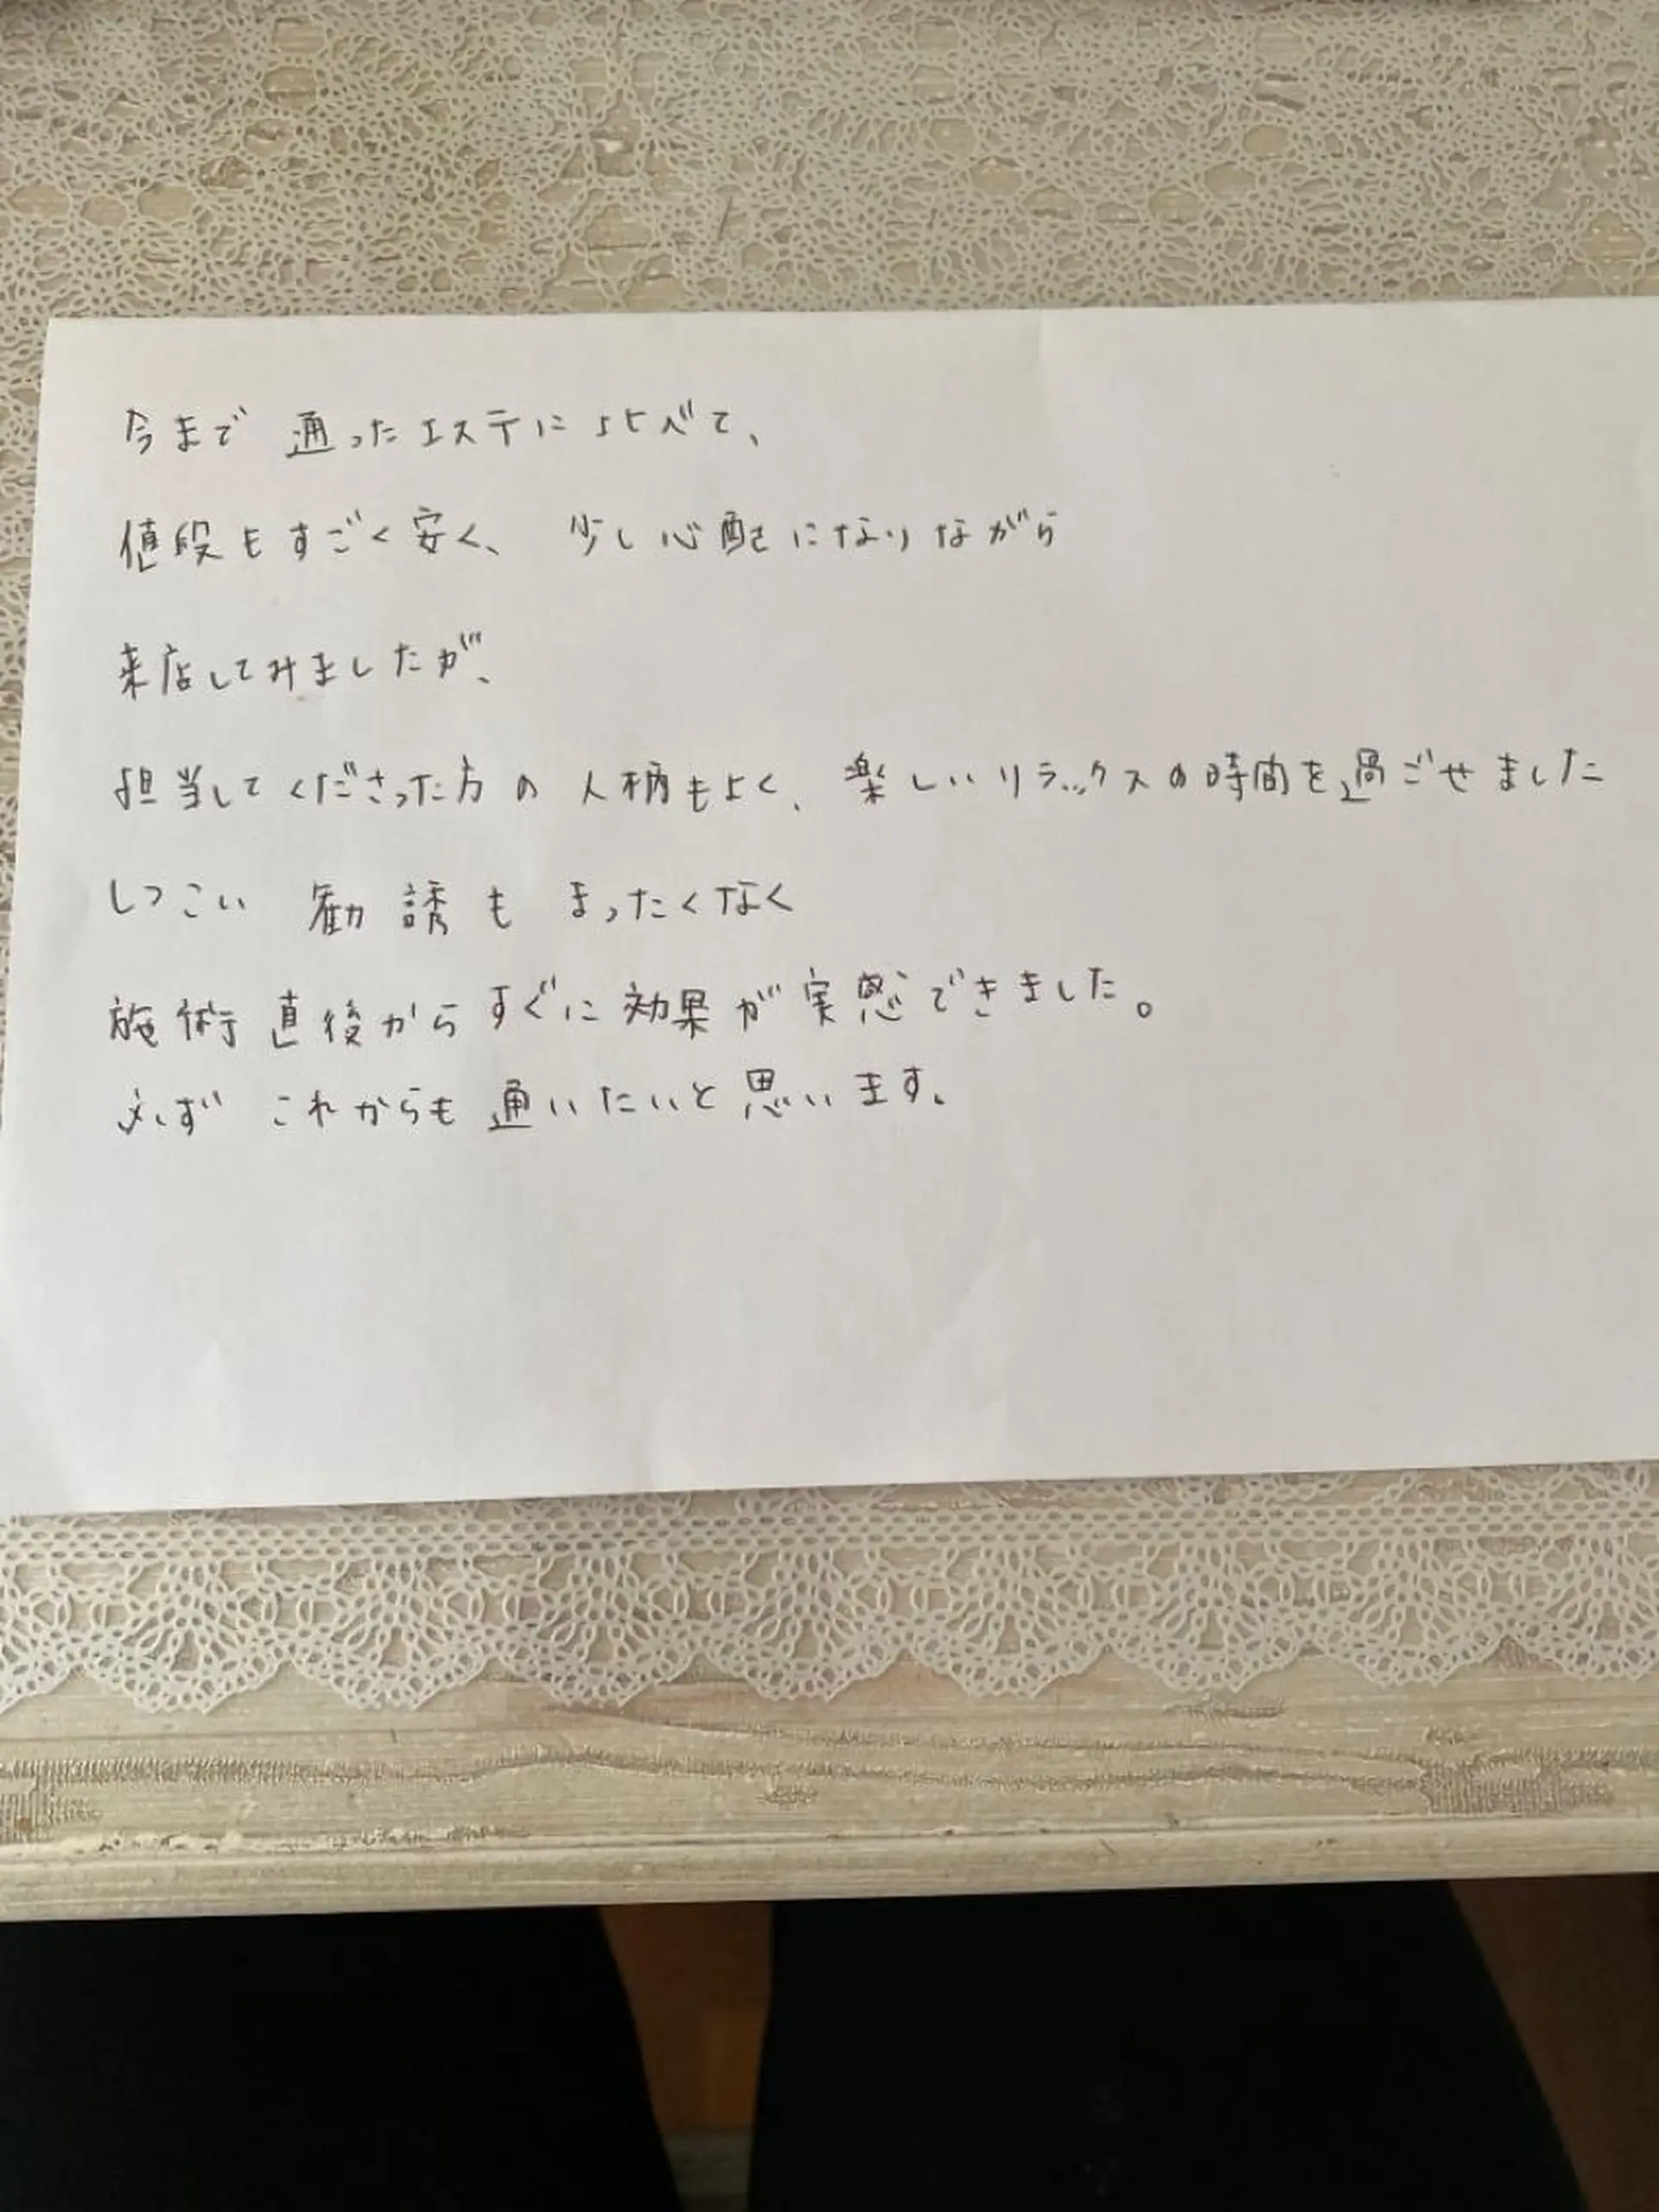 今まで 通ったエステに比べて、
値段もすごく安く、 少し心配になりながら
来店してみましたが、
担当してくださった方の人柄もよく、楽しいリラックスの時間を過ごせました
しつこい 勧誘も まったくなく
施術直後からすぐに効果が実感できました。
必ず これからも通いたいと思います。